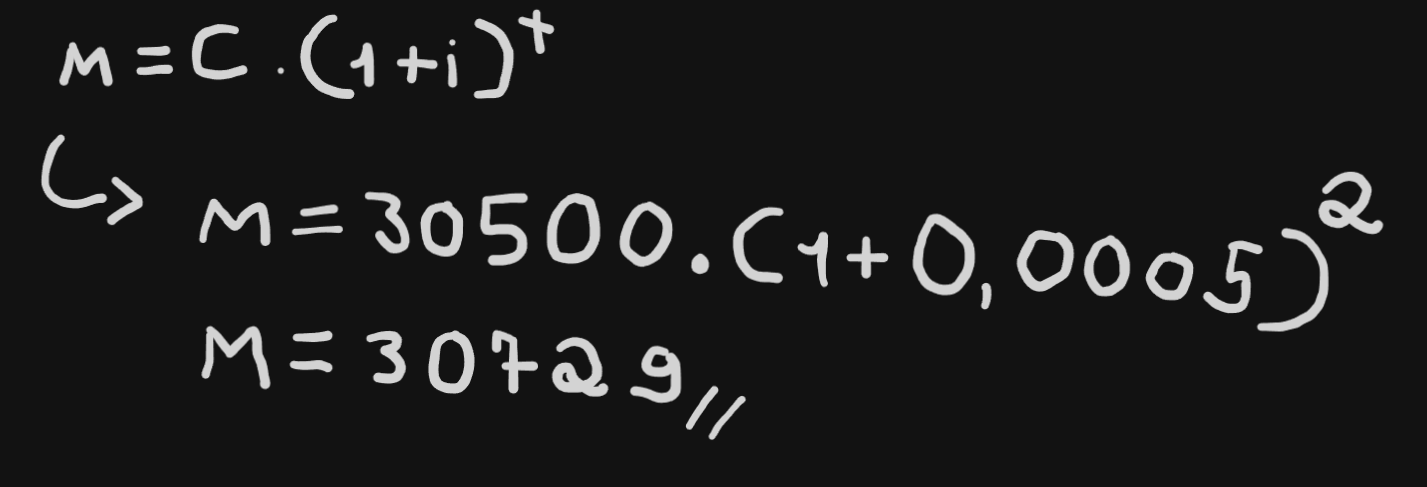 M = C . (1+i)^t
↳ M = 30500 . (1+0,0005)^2
M = 30729 //